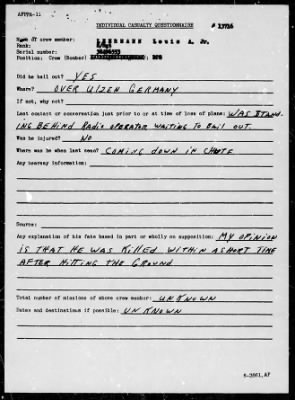 AFPPA-11
INDIVIDUAL CASUALTY QUESTIONNAIRE # 13716
Name of crew member: Louis A. Jr.
Rank:
Serial number:
Position: Crew (Bomber)
Did he bail out? YES
Where? OVER ULZEN GERMANY
If not, why not?
Last contact or conversation just prior to or at time of loss of plane: WAS STAND-
ING BEHIND RADIO OPERATOR WAITING TO BAIL OUT.
Was he injured? NO
Where was he when last seen? COMING DOWN IN CHUTE
Any hearsay information:
Source:
Any explanation of his fate based in part or wholly on supposition: MY OPINION
IS THAT HE WAS KILLED WITHIN A SHORT TIME
AFTER HITTING THE GROUND
Total number of missions of above crew member: UNKNOWN
Dates and destinations if possible: UNKNOWN
6-3861,AF